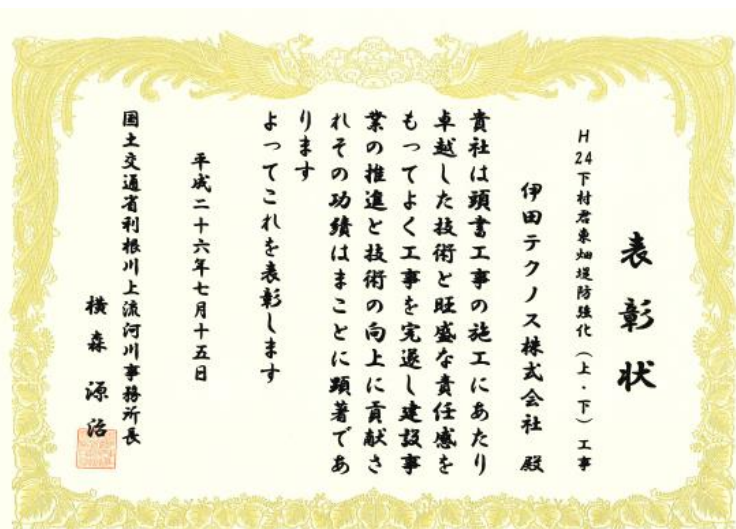 表彰状
H24下村君東畑堤防強化(上・下)工事
伊田テクノス株式会社 殿
貴社は頭書工事の施工にあたり
卓越した技術と旺盛な責任感を
もってよく工事を完遂し建設事
業の推進と技術の向上に貢献さ
れその功績はまことに顕著であ
ります
よってこれを表彰します
平成二十六年七月十五日
国土交通省利根川上流河川事務所長
横森 源治